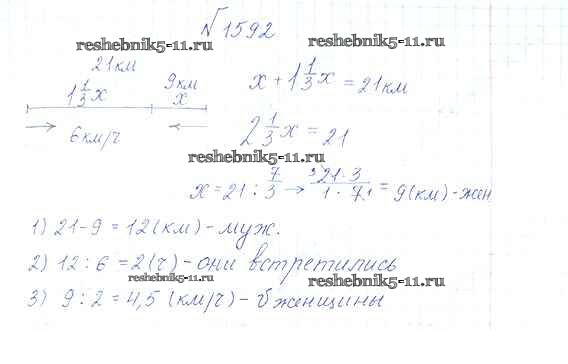 №1592
reshebnik5-11.ru
reshebnik5-11.ru
21км
1 1/3 x 9км
x
6км/ч
x + 1 1/3 x = 21км
2 1/3 x = 21
reshebnik5-11.ru
x = 21 : 7/3 → 21·3/1·7 = 9(км) - жен
1) 21-9 = 12(км) - муж.
2) 12 : 6 = 2(ч) - они встретились
3) 9 : 2 = 4,5 (км/ч) - женщины
reshebnik5-11.ru